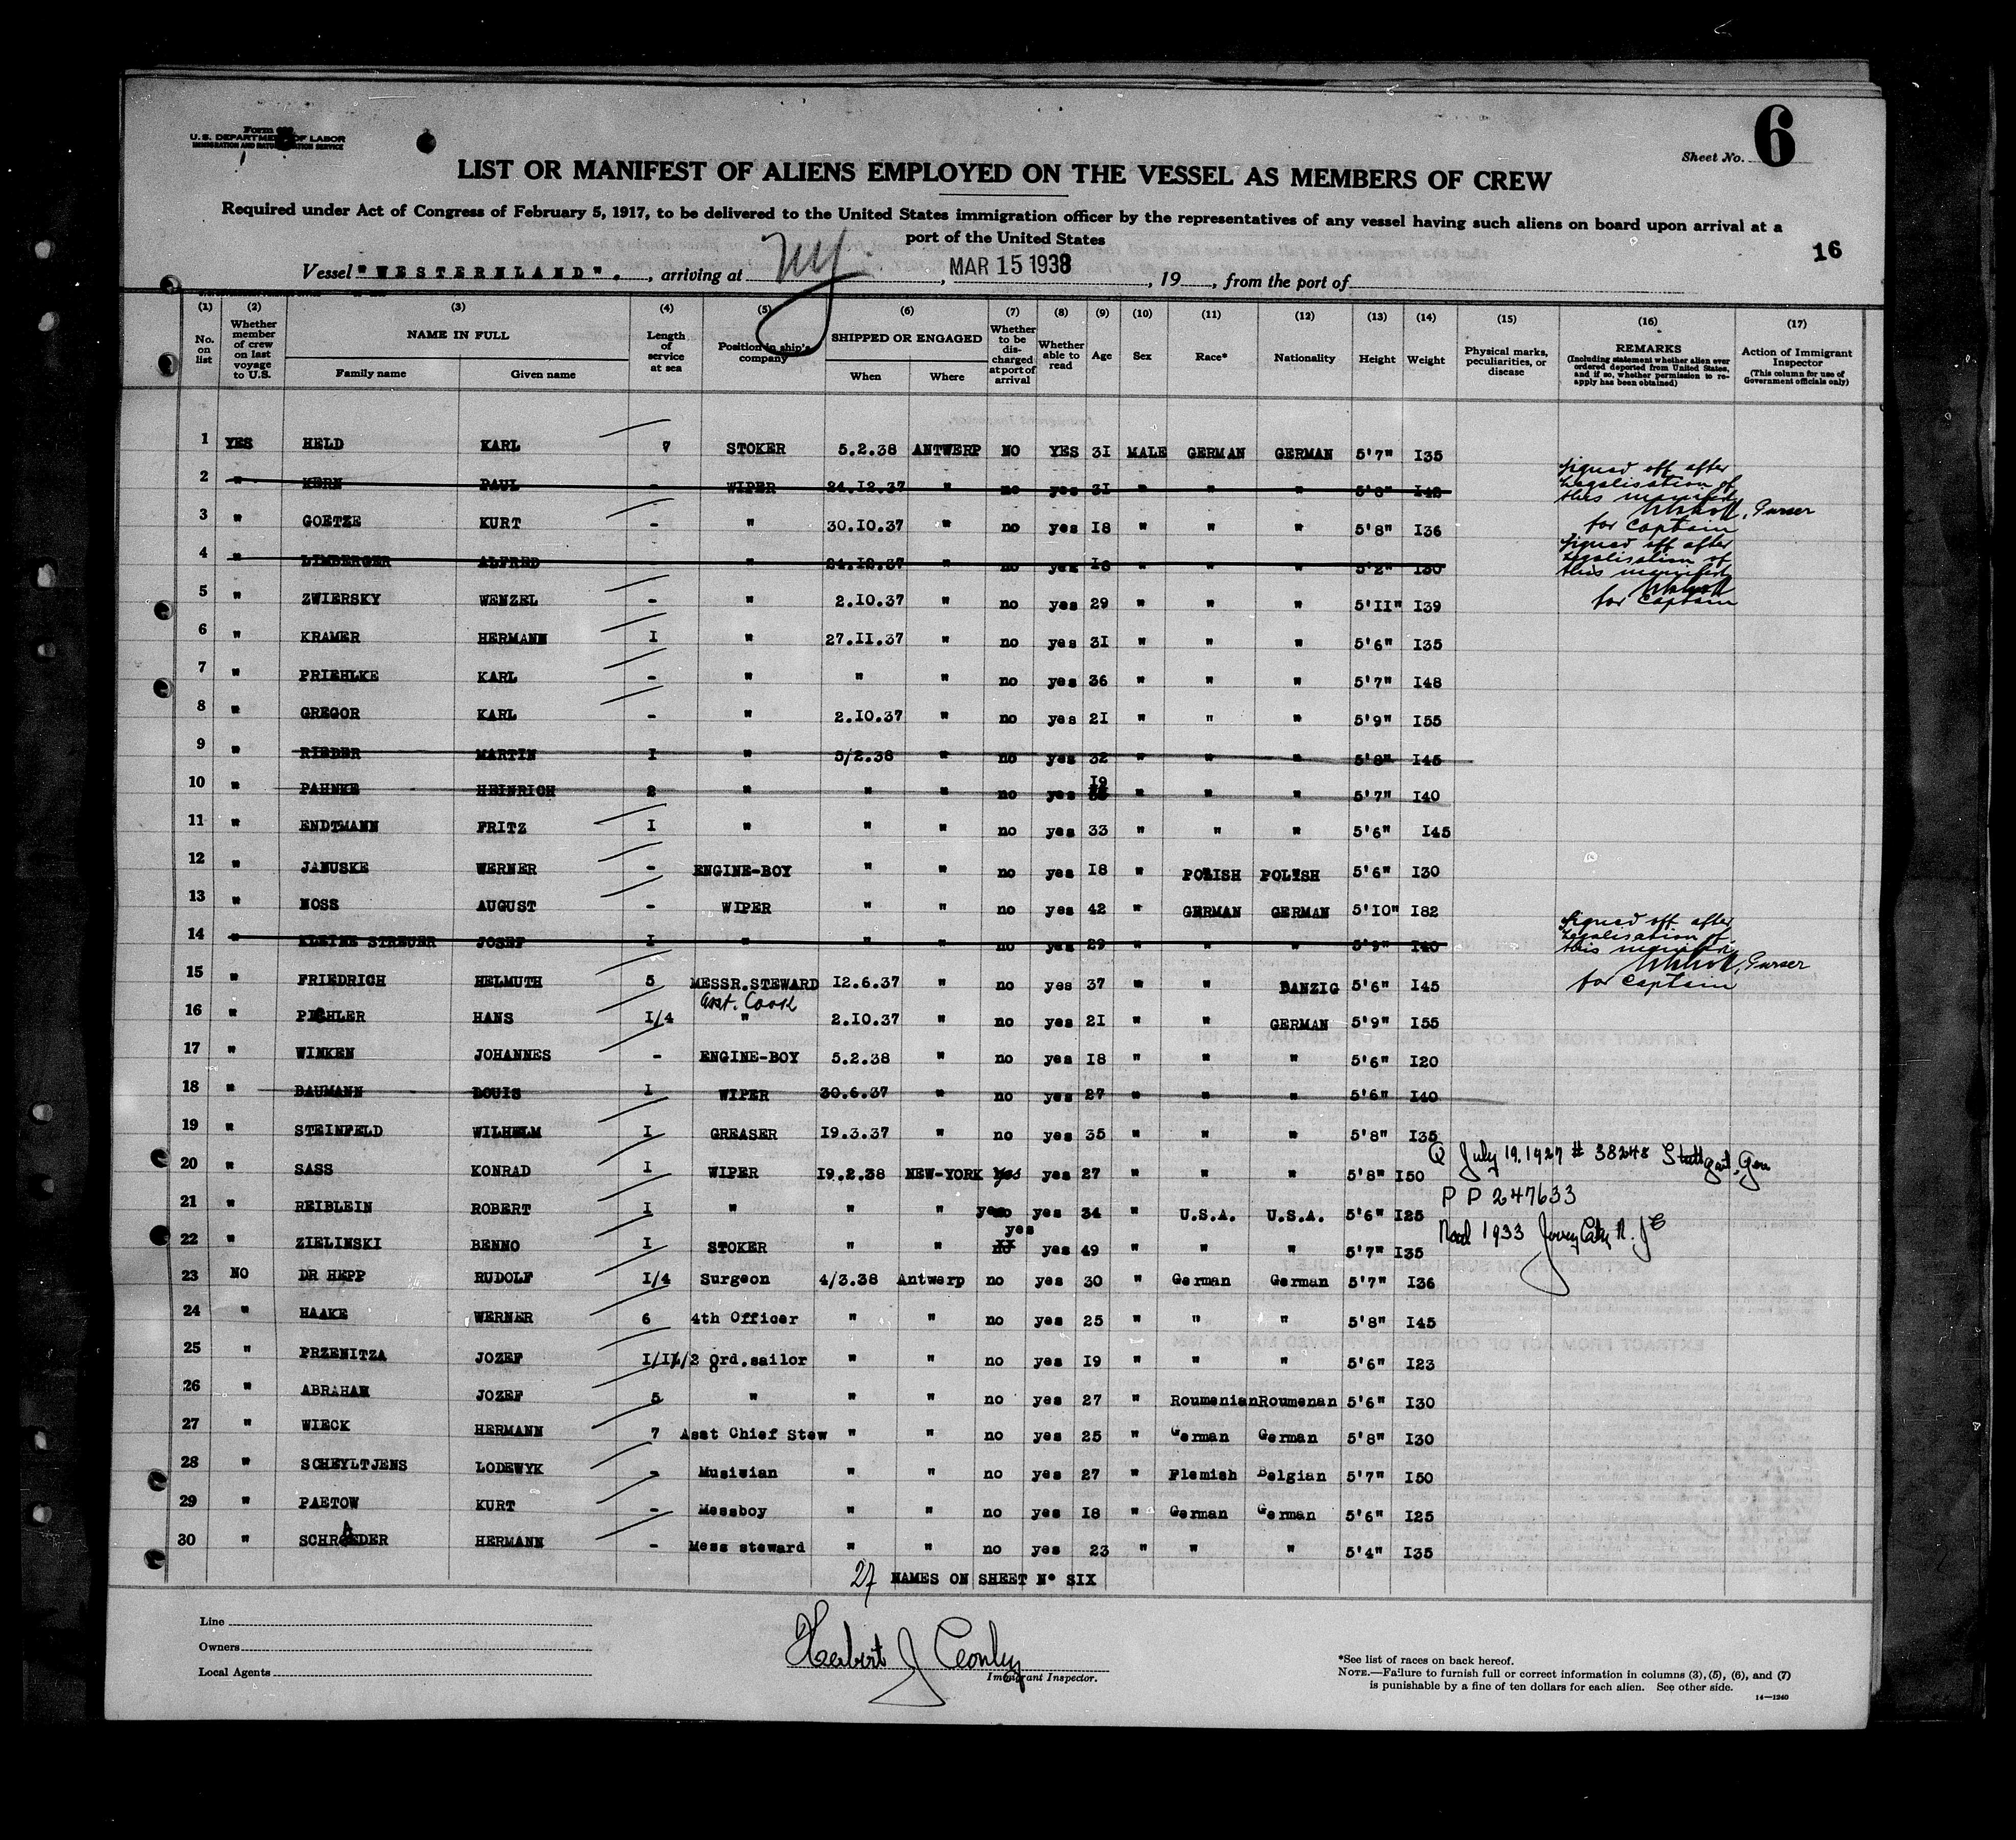 Form 680
U.S. DEPARTMENT OF LABOR
IMMIGRATION AND NATURALIZATION SERVICE
Sheet No. 6
LIST OR MANIFEST OF ALIENS EMPLOYED ON THE VESSEL AS MEMBERS OF CREW
Required under Act of Congress of February 5, 1917, to be delivered to the United States immigration officer by the representatives of any vessel having such aliens on board upon arrival at a
port of the United States
16
Vessel "WESTERNLAND"., arriving at NY, MAR 15 1938, 19, from the port of
(1) (2) (3) (4) (5) (6) (7) (8) (9) (10) (11) (12) (13) (14) (15) (16) (17)
No. on list
Whether member of crew on last voyage to U.S.
NAME IN FULL
Family name
Given name
Length of service at sea
Position in ship's company
SHIPPED OR ENGAGED
When
Where
Whether to be discharged at port of arrival
Whether able to read
Age
Sex
Race*
Nationality
Height
Weight
Physical marks, peculiarities, or disease
REMARKS
(Including statement whether alien ever ordered deported from United States, and if so, whether permission to re-apply has been obtained)
Action of Immigrant Inspector
(This column for use of Government officials only)
1 YES HELD KARL 7 STOKER 5.2.38 ANTWERP NO YES 3I MALE GERMAN GERMAN 5'7" I35
2 " KERN PAUL - WIPER 24.I2.37 " no yes 3I " " " 5'8" I48 Signed off after Legalisation of this manifest, Purser for Captain
3 " GOETZE KURT - " 30.I0.37 " no yes I8 " " " 5'8" I36
4 " LIMBERGER ALFRED - " 24.I2.37 " no yes I8 " " " 5'2" I30 Signed off after Legalisation of this manifest for Captain
5 " ZWIERSKY WENZEL - " 2.I0.37 " no yes 29 " " " 5'II" I39
6 " KRAMER HERMANN I " 27.II.37 " no yes 3I " " " 5'6" I35
7 " PRIEHLKE KARL - " " " no yes 36 " " " 5'7" I48
8 " GREGOR KARL - " 2.I0.37 " no yes 2I " " " 5'9" I55
9 " RIEDER MARTIN I " 5/2.38 " no yes 32 " " " 5'8" I45
10 " PAHNKE HEINRICH 2 " " " no yes I9 " " " 5'7" I40
11 " ENDTMANN FRITZ I " " " no yes 33 " " " 5'6" I45
12 " JANUSKE WERNER - ENGINE-BOY " " no yes I8 " POLISH POLISH 5'6" I30
13 " NOSS AUGUST - WIPER " " no yes 42 " GERMAN GERMAN 5'I0" I82
14 " KLEINE STREUER JOSEF I " " " no yes 29 " " " 5'9" I40 Signed off after Legalisation of this manifest, Purser for Captain
15 " FRIEDRICH HELMUTH 5 MESSR.STEWARD I2.6.37 " no yes 37 " " DANZIG 5'6" I45
16 " PICHLER HANS I/4 " Asst. Cook 2.I0.37 " no yes 2I " " GERMAN 5'9" I55
17 " WINKEN JOHANNES - ENGINE-BOY 5.2.38 " no yes I8 " " " 5'6" I20
18 " BAUMANN LOUIS I WIPER 30.6.37 " no yes 27 " " " 5'6" I40
19 " STEINFELD WILHELM I GREASER I9.3.37 " no yes 35 " " " 5'8" I35
20 " SASS KONRAD I WIPER I9.2.38 NEW-YORK yes yes 27 " " " 5'8" I50 Q July 19, 1927 # 38248 Stuttgart, Gen
21 " REIBLEIN ROBERT I " " " yes yes 34 " U.S.A. U.S.A. 5'6" I25 P P 247633
22 " ZIELINSKI BENNO I STOKER " " no yes yes 49 " " " 5'7" I35 Natd 1933 Jersey City N.J.
23 NO DR HEPP RUDOLF I/4 Surgeon 4/3.38 Antwerp no yes 30 " German German 5'7" I36
24 " HAAKE WERNER 6 4th Officer " " no yes 25 " " " 5'8" I45
25 " PRZENITZA JOZEF I/I1/2 Ord.sailor " " no yes I9 " " " 5'6" I23
26 " ABRAHAM JOZEF 5 " " " no yes 27 " Roumenian Roumenan 5'6" I30
27 " WIECK HERMANN 7 Asst Chief Stew " " no yes 25 " German German 5'8" I30
28 " SCHEYLTJENS LODEWYK - Musisian " " no yes 27 " Flemish Belgian 5'7" I50
29 " PAETOW KURT - Messboy " " no yes I8 " German German 5'6" I25
30 " SCHRAEDER HERMANN - Mess steward " " no yes 23 " " " 5'4" I35
27 NAMES ON SHEET N° SIX
Line
Owners
Local Agents
Herbert J Conley
Immigrant Inspector.
*See list of races on back hereof.
NOTE.—Failure to furnish full or correct information in columns (3), (5), (6), and (7)
is punishable by a fine of ten dollars for each alien. See other side.
14—1240